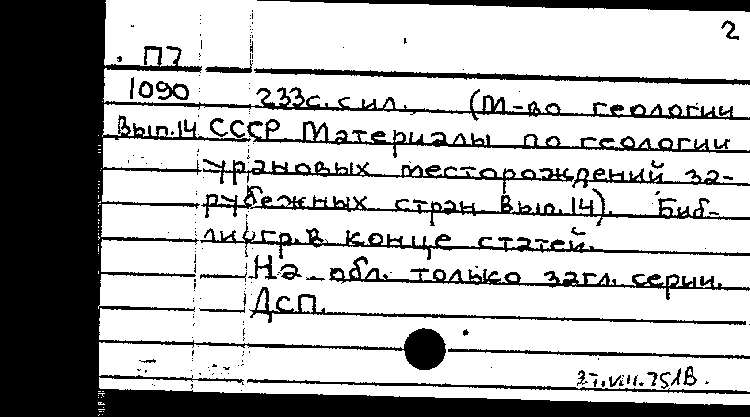 2
П7
1090 233с. с ил. (М-во геологии
Вып.14 СССР Материалы по геологии
урановых месторождений за-
рубежных стран Вып.14). Биб-
лиогр. в конце статей.
На обл. только загл. серии.
ДСП.